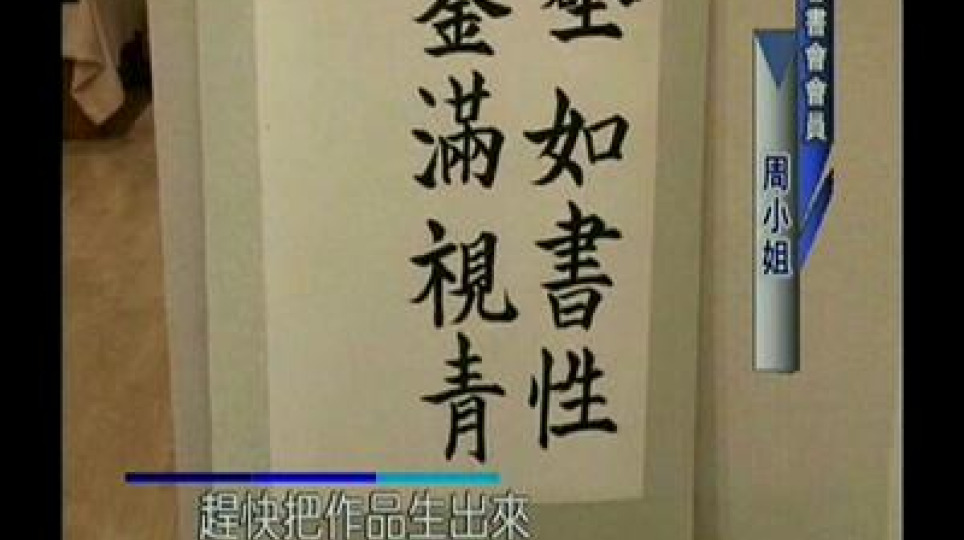 書會會員
周小姐
如書性
釜滿視青
趕快把作品生出來